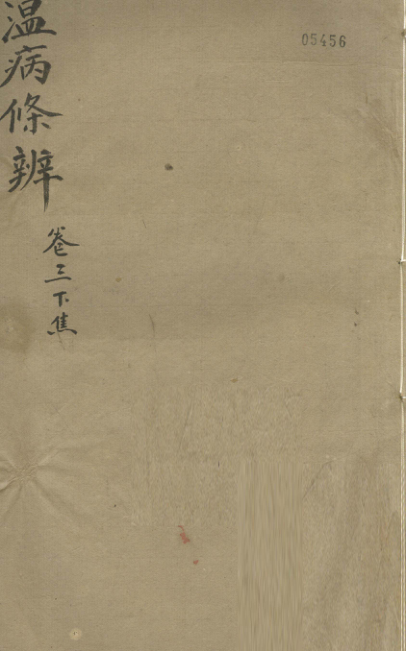 05456
温病條辨
卷三下焦